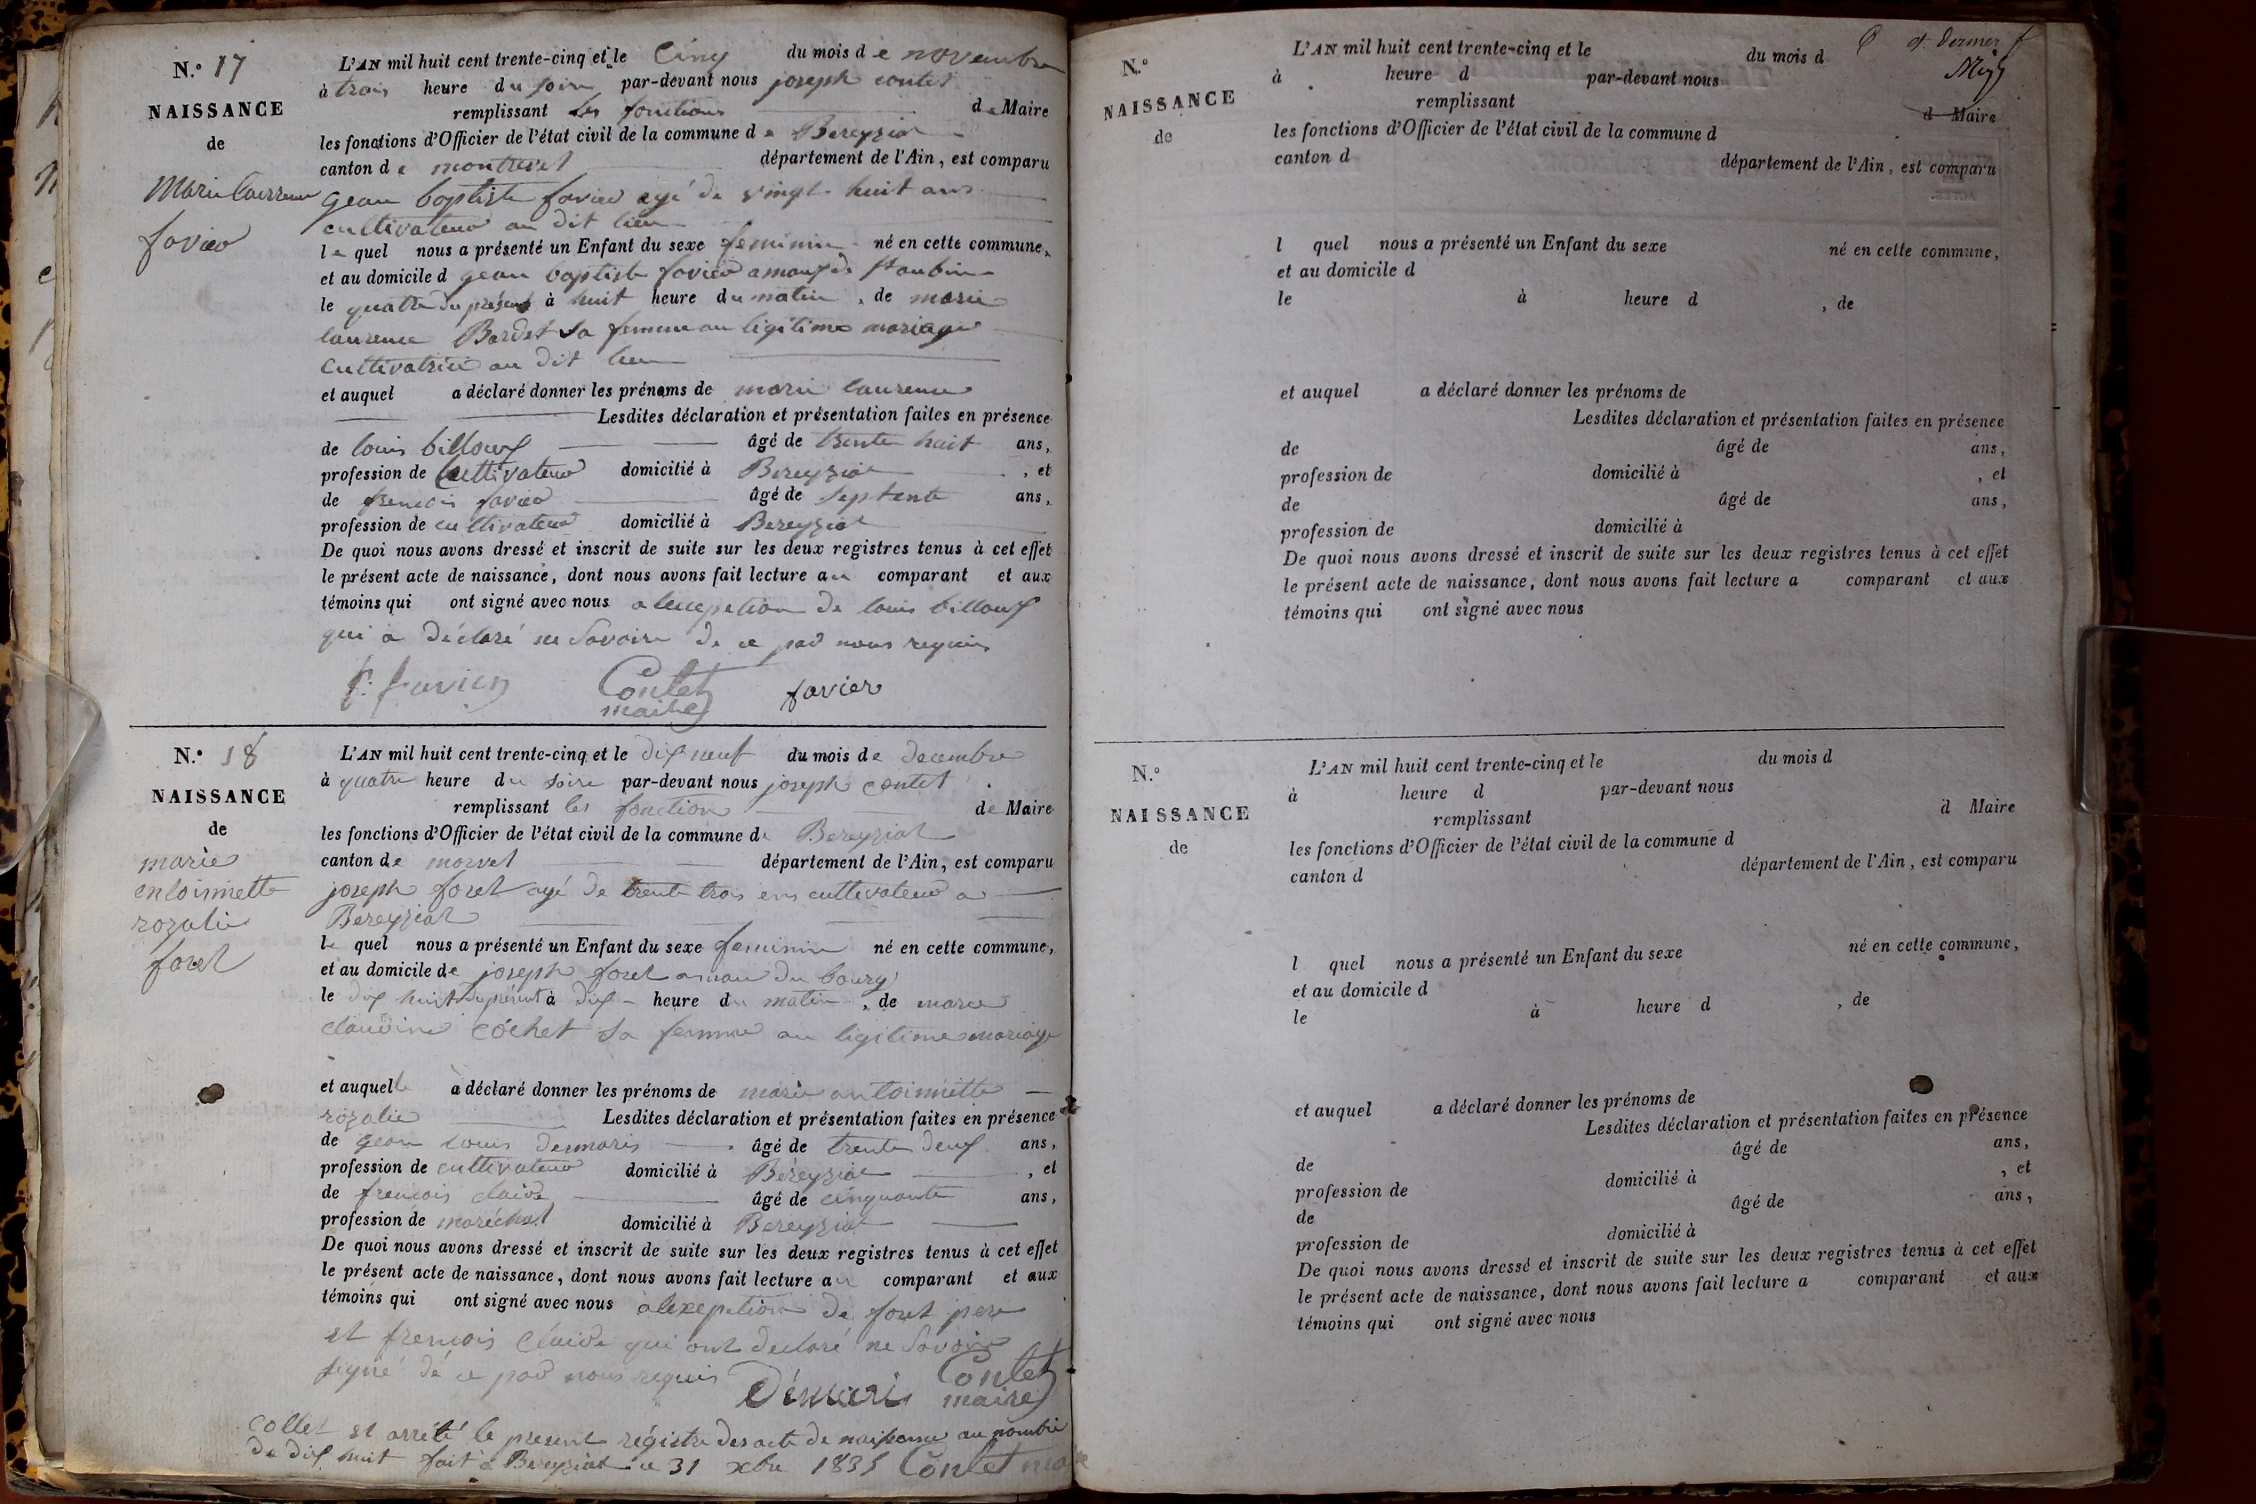 N.° 17
NAISSANCE
de
Marie laurence
favier
L'AN mil huit cent trente-cinq et le cinq du mois de novembre
à trois heure du soire par-devant nous joseph contet
remplissant les fonctions de Maire
les fonctions d'Officier de l'état civil de la commune de Bereyziat
canton de montrevel département de l'Ain, est comparu
gean baptiste favier agé de vingt huit ans
cultivateur au dit lieu
le quel nous a présenté un Enfant du sexe feminin né en cette commune,
et au domicile d gean baptiste favier amaux de
le quatre du présent à huit heure du matin, de marie
laurence Bardet sa femme au ligitime mariage
cultivatrice au dit lieu
et auquel a déclaré donner les prénoms de marie laurence
Lesdites déclaration et présentation faites en présence
de louis billoux âgé de trente huit ans,
profession de Cultivateur domicilié à Bereyziat, et
de frencois favier âgé de septente ans,
profession de cultivateur domicilié à Bereyziat
De quoi nous avons dressé et inscrit de suite sur les deux registres tenus à cet effet
le présent acte de naissance, dont nous avons fait lecture au comparant et aux
témoins qui ont signé avec nous de louis billoux
qui a déclaré ne savoire de ce par nous requis
f. favier Contet favier
maire
N.° 18
NAISSANCE
de
marie
entoinnette
rozalie
foret
L'AN mil huit cent trente-cinq et le dix neuf du mois de decembre
à quatre heure du soire par-devant nous joseph contet
remplissant les fonction de Maire
les fonctions d'Officier de l'état civil de la commune de Bereyziat
canton de morvel département de l'Ain, est comparu
joseph foret agé de trente trois ens cultivateur a
Bereyziat
le quel nous a présenté un Enfant du sexe feminin né en cette commune,
et au domicile de joseph foret amau du bourg
le dix huit du présent à dix heure du matin, de marie
claudine cochet sa femme au ligitime mariage
et auquelle a déclaré donner les prénoms de marie antoinnette
rozalie Lesdites déclaration et présentation faites en présence
de gean louis demaris âgé de trente deux ans,
profession de cultivateur domicilié à Béreyziat, et
de frencois claide âgé de cinquante ans,
profession de maréchal domicilié à Bereyziat
De quoi nous avons dressé et inscrit de suite sur les deux registres tenus à cet effet
le présent acte de naissance, dont nous avons fait lecture au comparant et aux
témoins qui ont signé avec nous alexepetion de foret pere
et frencois claide qui ont declaré ne savoire
signé dé ce par nous requis Contet
Démaris maire
collet et arrété le present régistre des acte de naissance au nombre
de dix huit fait à Bereyziat ce 31 xbre 1835 Contet
N.°
NAISSANCE
de
L'AN mil huit cent trente-cinq et le du mois d
à heure d par-devant nous
remplissant d Maire
les fonctions d'Officier de l'état civil de la commune d
canton d département de l'Ain, est comparu
l quel nous a présenté un Enfant du sexe né en cette commune,
et au domicile d
le à heure d , de
et auquel a déclaré donner les prénoms de
Lesdites déclaration et présentation faites en présence
de âgé de ans,
profession de domicilié à , et
de âgé de ans,
profession de domicilié à
De quoi nous avons dressé et inscrit de suite sur les deux registres tenus à cet effet
le présent acte de naissance, dont nous avons fait lecture a comparant et aux
témoins qui ont signé avec nous
N.°
NAISSANCE
de
L'AN mil huit cent trente-cinq et le du mois d
à heure d par-devant nous
remplissant d Maire
les fonctions d'Officier de l'état civil de la commune d
canton d département de l'Ain, est comparu
l quel nous a présenté un Enfant du sexe né en cette commune,
et au domicile d
le à heure d , de
et auquel a déclaré donner les prénoms de
Lesdites déclaration et présentation faites en présence
de âgé de ans,
profession de domicilié à , et
de âgé de ans,
profession de domicilié à
De quoi nous avons dressé et inscrit de suite sur les deux registres tenus à cet effet
le présent acte de naissance, dont nous avons fait lecture a comparant et aux
témoins qui ont signé avec nous